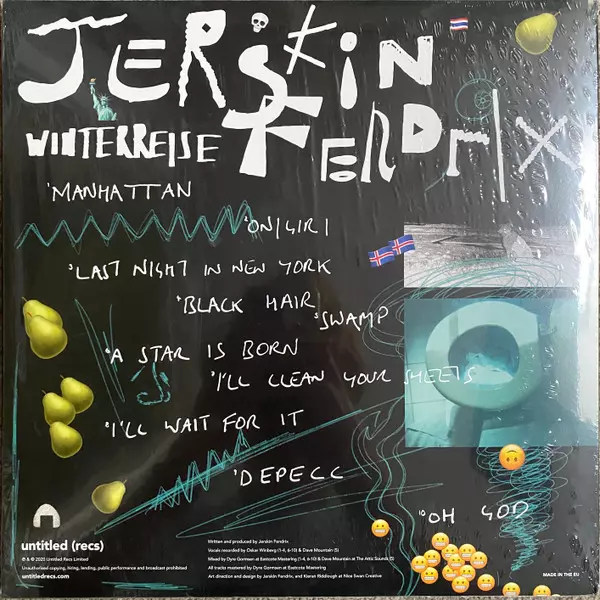 JERSKIN
FENDRIX
WINTERREISE
¹MANHATTAN
²ONIGIRI
³LAST NIGHT IN NEW YORK
⁴BLACK HAIR
⁵SWAMP
⁶A STAR IS BORN
⁷I'LL CLEAN YOUR SHEETS
⁸I'LL WAIT FOR IT
⁹DEPECC
¹⁰OH GOD
untitled (recs)
℗ & © 2020 Untitled Recs Limited
Unauthorised copying, hiring, lending, public performance and broadcast prohibited
untitledrecs.com
Written and produced by Jerskin Fendrix
Vocals recorded by Oskar Winberg (1-4, 6-10) & Dave Mountain (5)
Mixed by Dyre Gormsen at Eastcote Mastering (1-4, 6-10) & Dave Mountain at The Attic Sounds (5)
All tracks mastered by Dyre Gormsen at Eastcote Mastering
Art direction and design by Jerskin Fendrix, and Kieran Riddiough at Nice Swan Creative
MADE IN THE EU